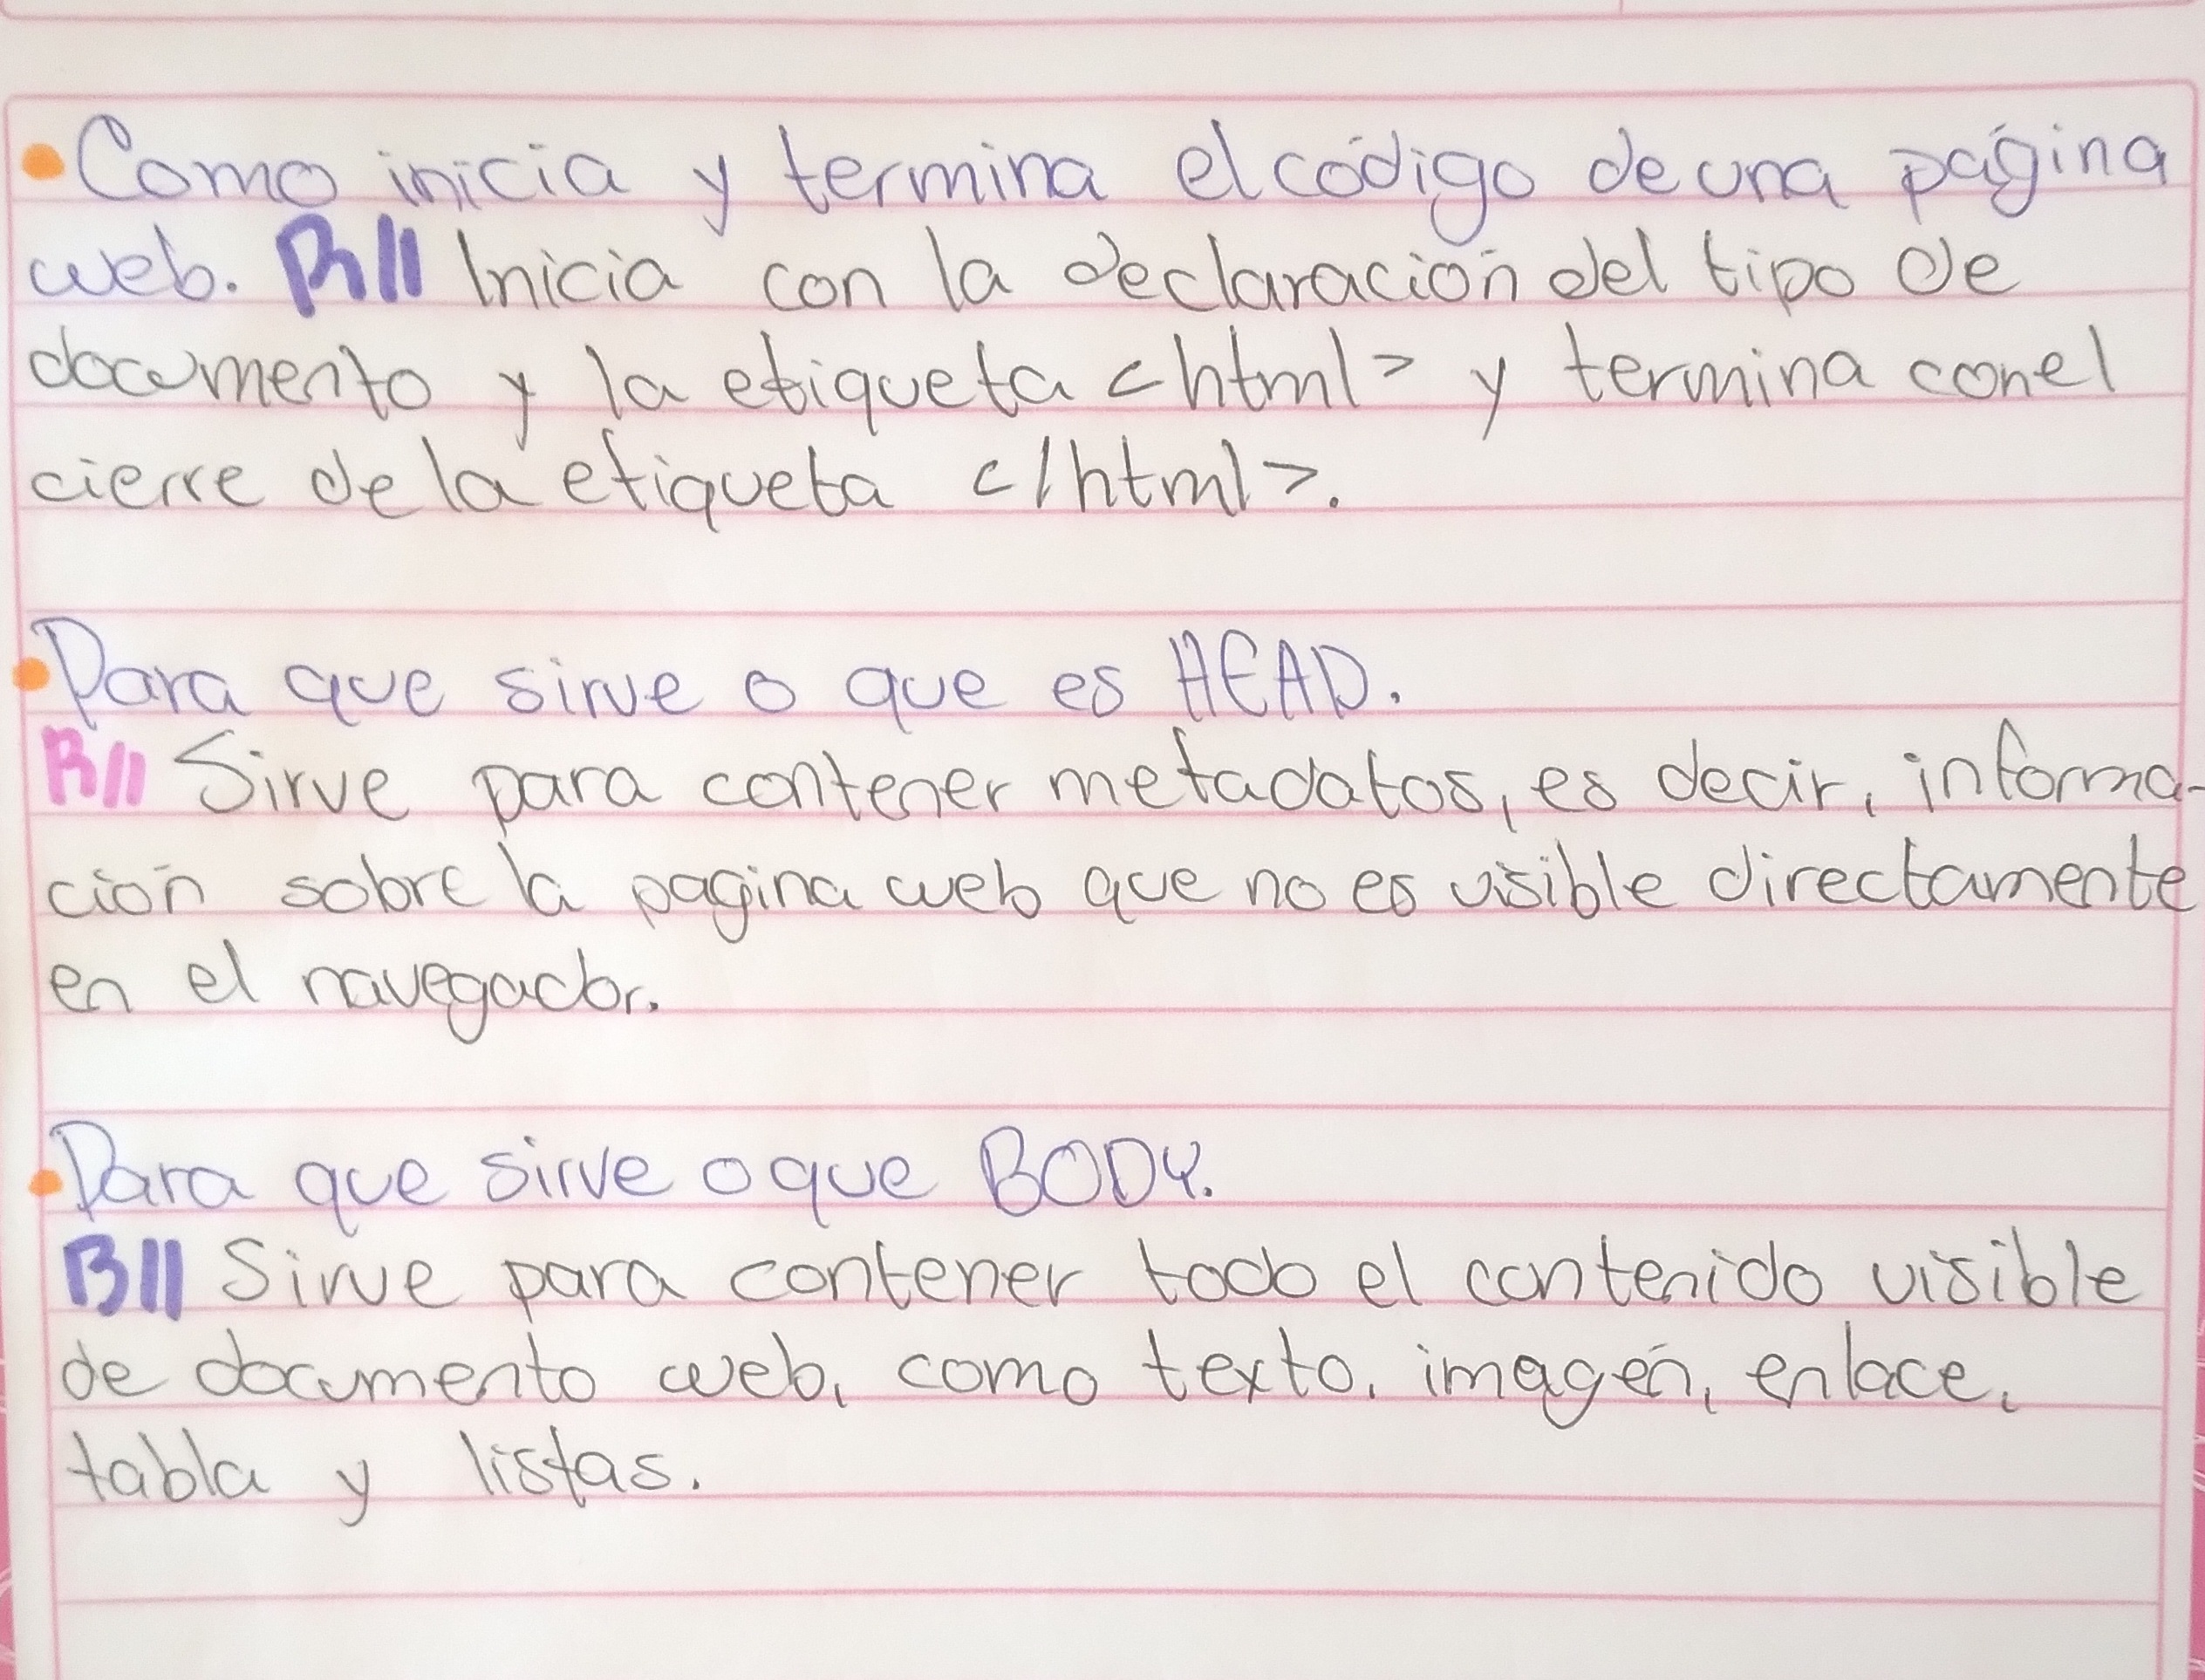 • Como inicia y termina el código de una página
web. R// Inicia con la declaración del tipo de
documento y la etiqueta <html> y termina con el
cierre de la etiqueta </html>.
• Para que sirve o que es HEAD.
R// Sirve para contener metadatos, es decir, informa-
ción sobre la pagina web que no es visible directamente
en el navegador.
• Para que sirve o que BODY.
R// Sirve para contener todo el contenido visible
de documento web, como texto, imagen, enlace,
tabla y listas.